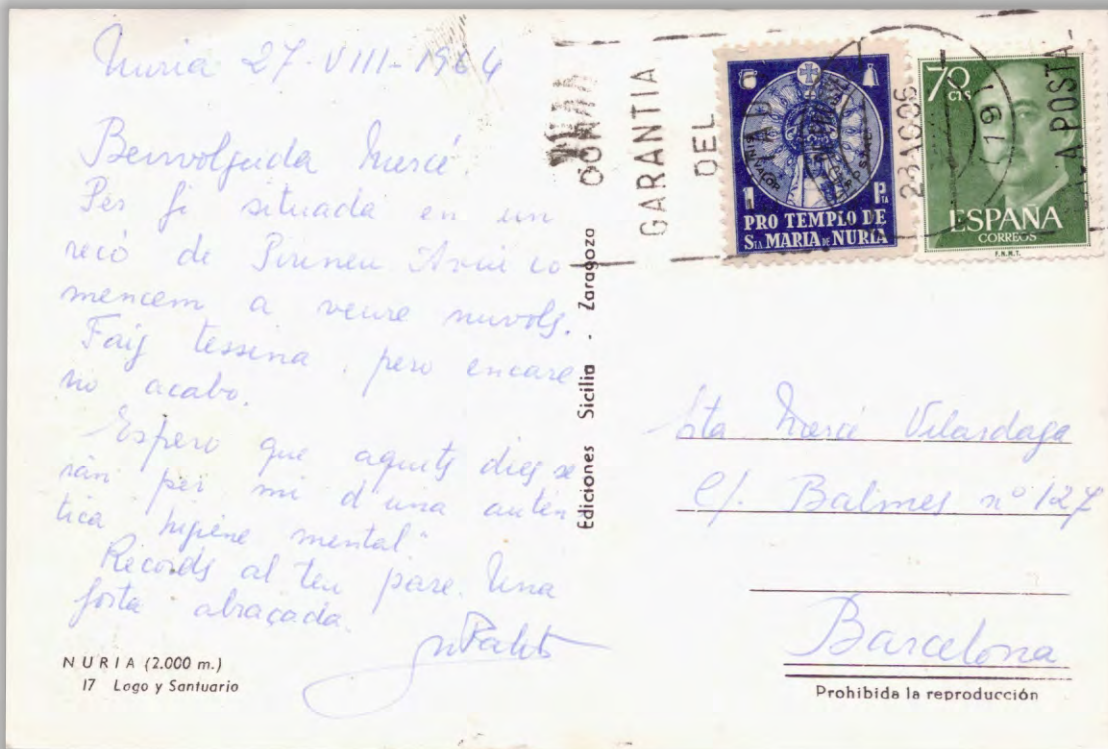 Nuria 27-VIII-1964
Benvolguda Mercé.
Per fi situada en un
recó de Pirineu. Avui co
mencem a veure nuvols.
Faig tessina, pero encare
no acabo.
Espero que aquets dies se
ràn per mi d'una autèn
tica "higiene mental."
Records al teu pare. Una
forta abraçada.
NURIA (2.000 m.)
17 Lago y Santuario
Ediciones Sicilia - Zaragoza
GARANTIA
DEL
1 PTA
PRO TEMPLO DE
STA MARIA DE NURIA
70 CTS
ESPAÑA
CORREOS
F.N.M.T.
Sta Mercé Vilardaga
C/. Balmes nº 127
Barcelona
Prohibida la reproducción